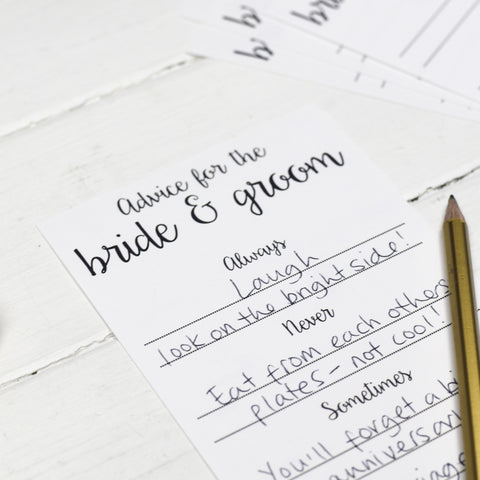 Advice for the
bride & groom
Always
Laugh
look on the bright side!
Never
Eat from each others
plates - not cool!
Sometimes
You'll forget a